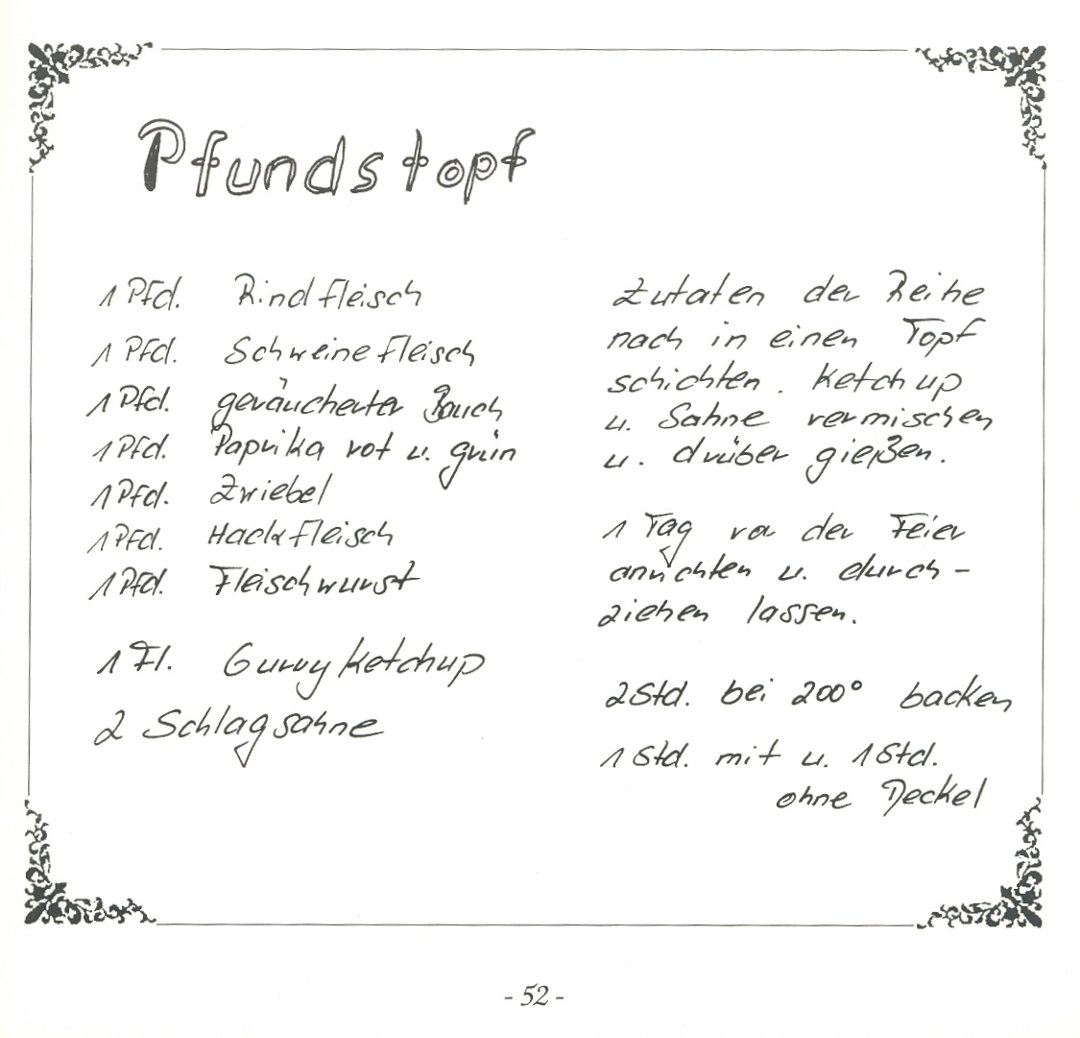 Pfundstopf
1 Pfd. Rindfleisch
1 Pfd. Schweinefleisch
1 Pfd. geräucherter Bauch
1 Pfd. Paprika rot u. grün
1 Pfd. Zwiebel
1 Pfd. Hackfleisch
1 Pfd. Fleischwurst
1 Fl. Curryketchup
2 Schlagsahne
Zutaten der Reihe
nach in einen Topf
schichten. Ketchup
u. Sahne vermischen
u. drüber gießen.
1 Tag vor der Feier
anrichten u. durch-
ziehen lassen.
2 Std. bei 200° backen
1 Std. mit u. 1 Std.
ohne Deckel
- 52 -